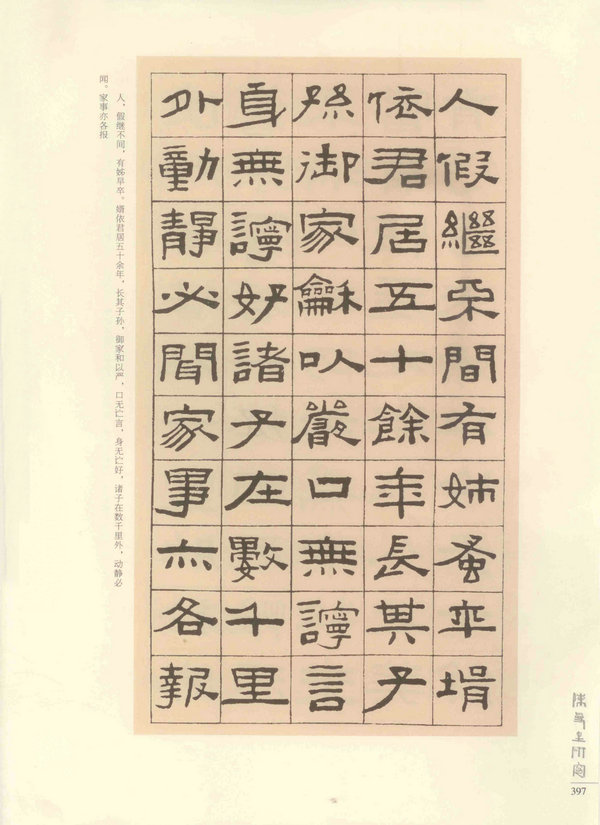 人假繼不間有姊蚤卒壻
依君居五十餘年長其子
孫御家龢以嚴口無言
身無好諸子在數千里
外動靜必聞家事亦各報
人，假继不间，有姊早卒。婿依君居五十余年，长其子孙，御家和以严，口无言，身无好，诸子在数千里外，动静必
闻。家事亦各报
397